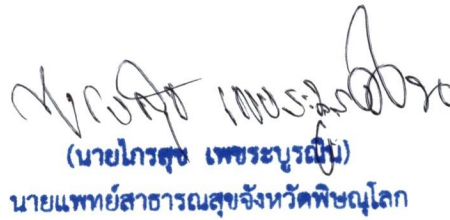 (นายไกรสุข เพชระบูรณิน)
นายแพทย์สาธารณสุขจังหวัดพิษณุโลก